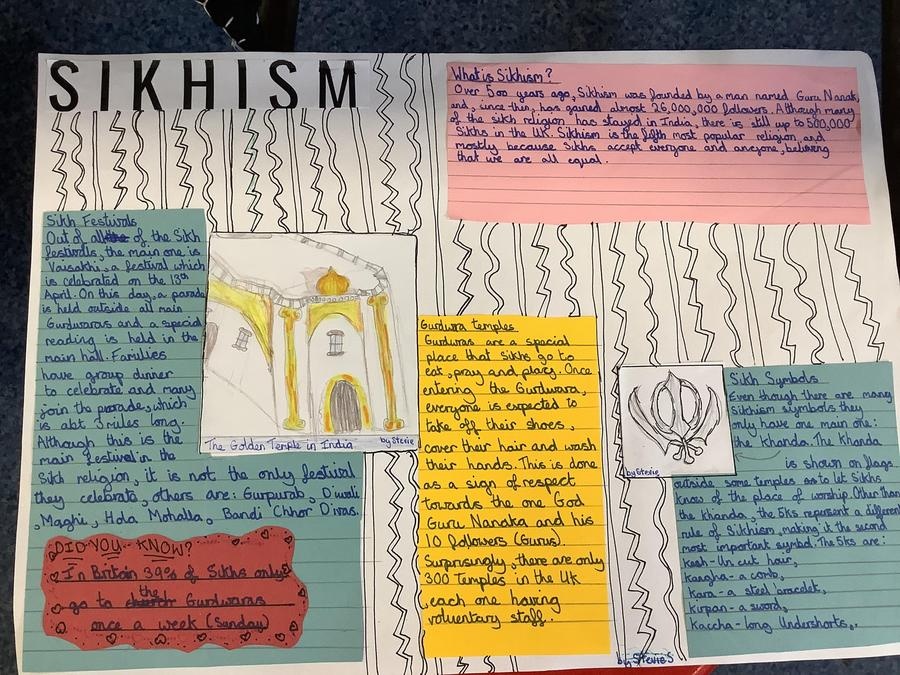 SIKHISM
What is Sikhism?
Over 500 years ago, Sikhism was founded by a man named Guru Nanak,
and, since then, has gained almost 26,000,000 followers. Although many
of the sikh religion has stayed in India, there is still up to 500,000
Sikhs in the UK. Sikhism is the fifth most popular religion, and
mostly because Sikhs accept everyone and anyone, believing
that we are all equal.
Sikh Festivals
Out of all of the Sikh
festivals, the main one is
Vaisakhi, a festival which
is celebrated on the 13th
April. On this day, a parade
is held outside all main
Gurdwaras and a special
reading is held in the
main hall. Families
have group dinner
to celebrate and many
join the parade, which
is abt 3 miles long.
Although this is the
main festival in the
Sikh religion, it is not the only festival
they celebrate, others are: Gurpurab, Diwali
, Maghi, Hola Mohalla, Bandi Chhor Divas.
DID YOU KNOW?
In Britain 39% of Sikhs only
go to the Gurdwaras
once a week (Sunday)
The Golden Temple in India by Stevie
Gurdwra temples
Gurdwras are a special
place that Sikhs go to
eat, pray and play. Once
entering the Gurdwara,
everyone is expected to
take off their shoes,
cover their hair and wash
their hands. This is done
as a sign of respect
towards the one God
Guru Nanaka and his
10 followers (Gurus).
Surprisingly, there are only
300 temples in the UK
, each one having
voluntary staff.
by Stevie
Sikh Symbols
Even though there are many
Sikhism symbols they
only have one main one:
the Khanda. The Khanda
is shown on flags
outside some temples as to let Sikhs
know of the place of worship. Other than
the khanda, the 5Ks represent a different
rule of Sikhism, making it the second
most important symbol. The 5Ks are:
Kesh - Un cut hair,
Kangha - a comb,
Kara - a steel bracelet,
Kirpan - a sword,
Kaccha - long Undershorts.
by Stevie S